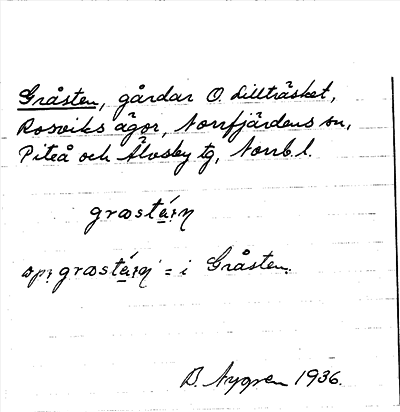 Gråsten, gårdar O. Lillträsket,
Rosviks ägor, Norrfjärdens sn,
Piteå och Älvsby tg, Norrb. l.
græstá:n
op: græstá:n = i Gråsten.
B. Nygren 1936.